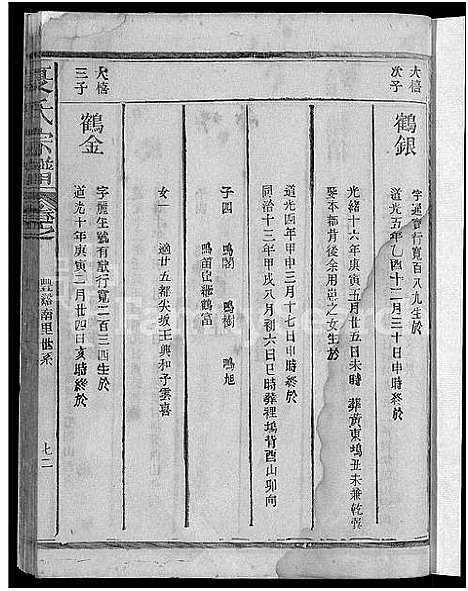 大禧
次子
鶴銀
字遜實行寬百八九生於
道光五年乙酉十二月三十日申時終於
光緒十六年庚寅五月廿五日未時 葬黃東塢丑未兼乾巽
娶不福背後余用崑之女生於
道光四年甲申三月十七日申時終於
同治十三年甲戌八月初六日巳時葬裡塢背酉山卯向
子四 鳴閣 鳴樹 鳴旭
鳴笛出繼鶴富
女一 適廿五都尖坂王興和子雲喜
大禧
三子
鶴金
字麗生號有斌行寬二百三四生於
道光十年庚寅二月廿四日亥時終於
夏氏宗譜
豐谿南里世系
七二